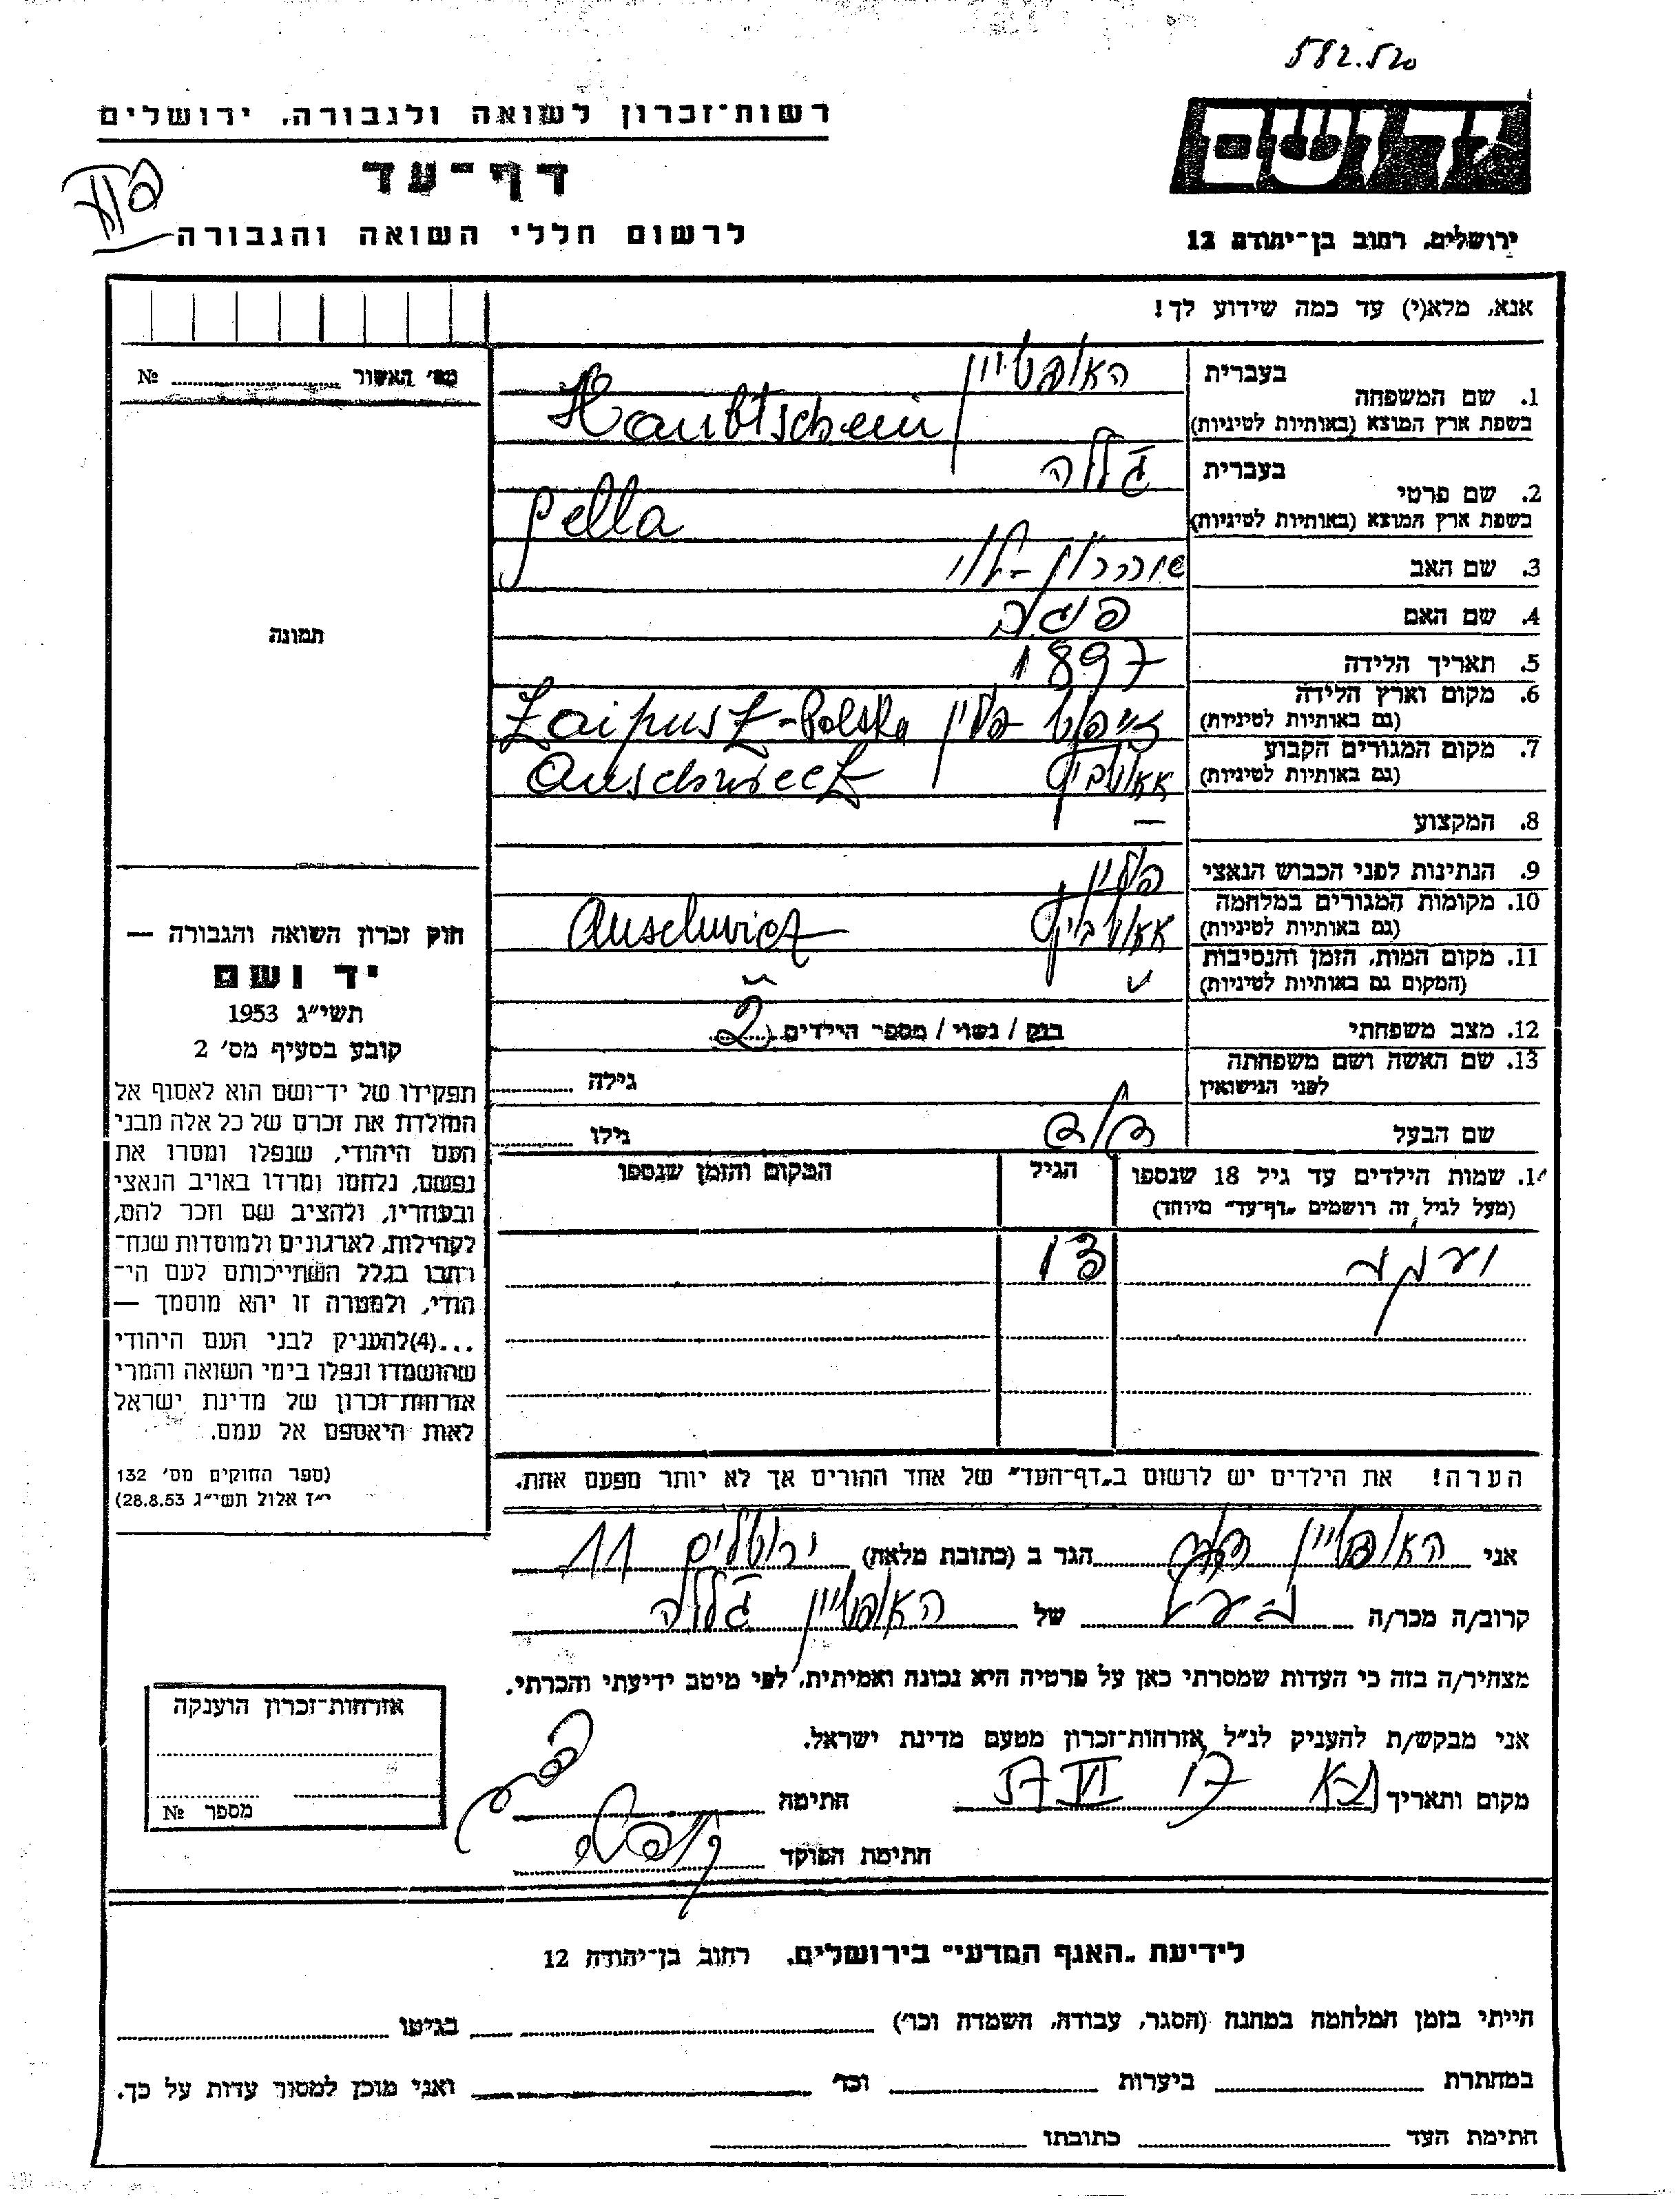 582.520
רשות־זכרון לשואה ולגבורה, ירושלים
יד ושם
דף־עד
לרשום חללי השואה והגבורה
ירושלים, רחוב בן־יהודה 12
אנא, מלא(י) עד כמה שידוע לך!
מס' האשור № 
1. שם המשפחה
בעברית האופטיין
בשפת ארץ המוצא (באותיות לטיניות) Haubtschein
2. שם פרטי
בעברית גלה
בשפת ארץ המוצא (באותיות לטיניות) gella
3. שם האב
4. שם האם
5. תאריך הלידה 1897
6. מקום וארץ הלידה
(גם באותיות לטיניות) פולין Zaipusz-Polska
7. מקום המגורים הקבוע
(גם באותיות לטיניות) Auschwiecz
8. המקצוע —
9. הנתינות לפני הכבוש הנאצי פולין
10. מקומות המגורים במלחמה
(גם באותיות לטיניות) Auschwicz
11. מקום המות, הזמן והנסיבות
(המקום גם באותיות לטיניות) "
12. מצב משפחתי רווק / נשוי / מספר הילדים 2
13. שם האשה ושם משפחתה
לפני הנישואין גילה
שם הבעל דוד גילו
14. שמות הילדים עד גיל 18 שנספו
(מעל לגיל זה רושמים „דף־עד" מיוחד)
הגיל
המקום והזמן שנספו
13
הערה! את הילדים יש לרשום ב„דף־העד" של אחד ההורים אך לא יותר מפעם אחת.
תמונה
חוק זכרון השואה והגבורה —
יד ושם
תשי"ג 1953
קובע בסעיף מס' 2
תפקידו של יד־ושם הוא לאסוף אל
המולדת את זכרם של כל אלה מבני
העם היהודי, שנפלו ומסרו את
נפשם, נלחמו ומרדו באויב הנאצי
ובעוזריו, ולהציב שם וזכר להם,
לקהילות, לארגונים ולמוסדות שנח־
רבו בגלל השתייכותם לעם הי־
הודי, ולמטרה זו יהא מוסמך —
...(4)להעניק לבני העם היהודי
שהושמדו ונפלו בימי השואה והמרי
אזרחות־זכרון של מדינת ישראל
לאות היאספם אל עמם.
(ספר החוקים מס' 132
י"ז אלול תשי"ג 28.8.53)
אני האופטיין דוד הגר ב (כתובת מלאה) ירושלים 11
קרוב/ה מכר/ה בעל של האופטיין גלה
מצהיר/ה בזה כי העדות שמסרתי כאן על פרטיה היא נכונה ואמיתית, לפי מיטב ידיעתי והכרתי.
אני מבקש/ת להעניק לנ"ל אזרחות־זכרון מטעם מדינת ישראל.
מקום ותאריך ת"א 17 VI 57 חתימה
חתימת הפוקד
אזרחות־זכרון הוענקה
מספר №
לידיעת „האגף המדעי" בירושלים, רחוב בן־יהודה 12
הייתי בזמן המלחמה במחנה (הסגר, עבודה, השמדה וכו') בגיטו
במחתרת ביערות וכו' ואני מוכן למסור עדות על כך.
חתימת העד כתובתו